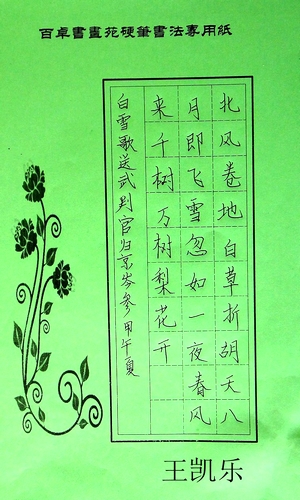 百卓書畫苑硬筆書法專用紙
北风卷地白草折胡天八
月即飞雪忽如一夜春风
来千树万树梨花开
白雪歌送武判官归京岑参甲午夏
王凯乐